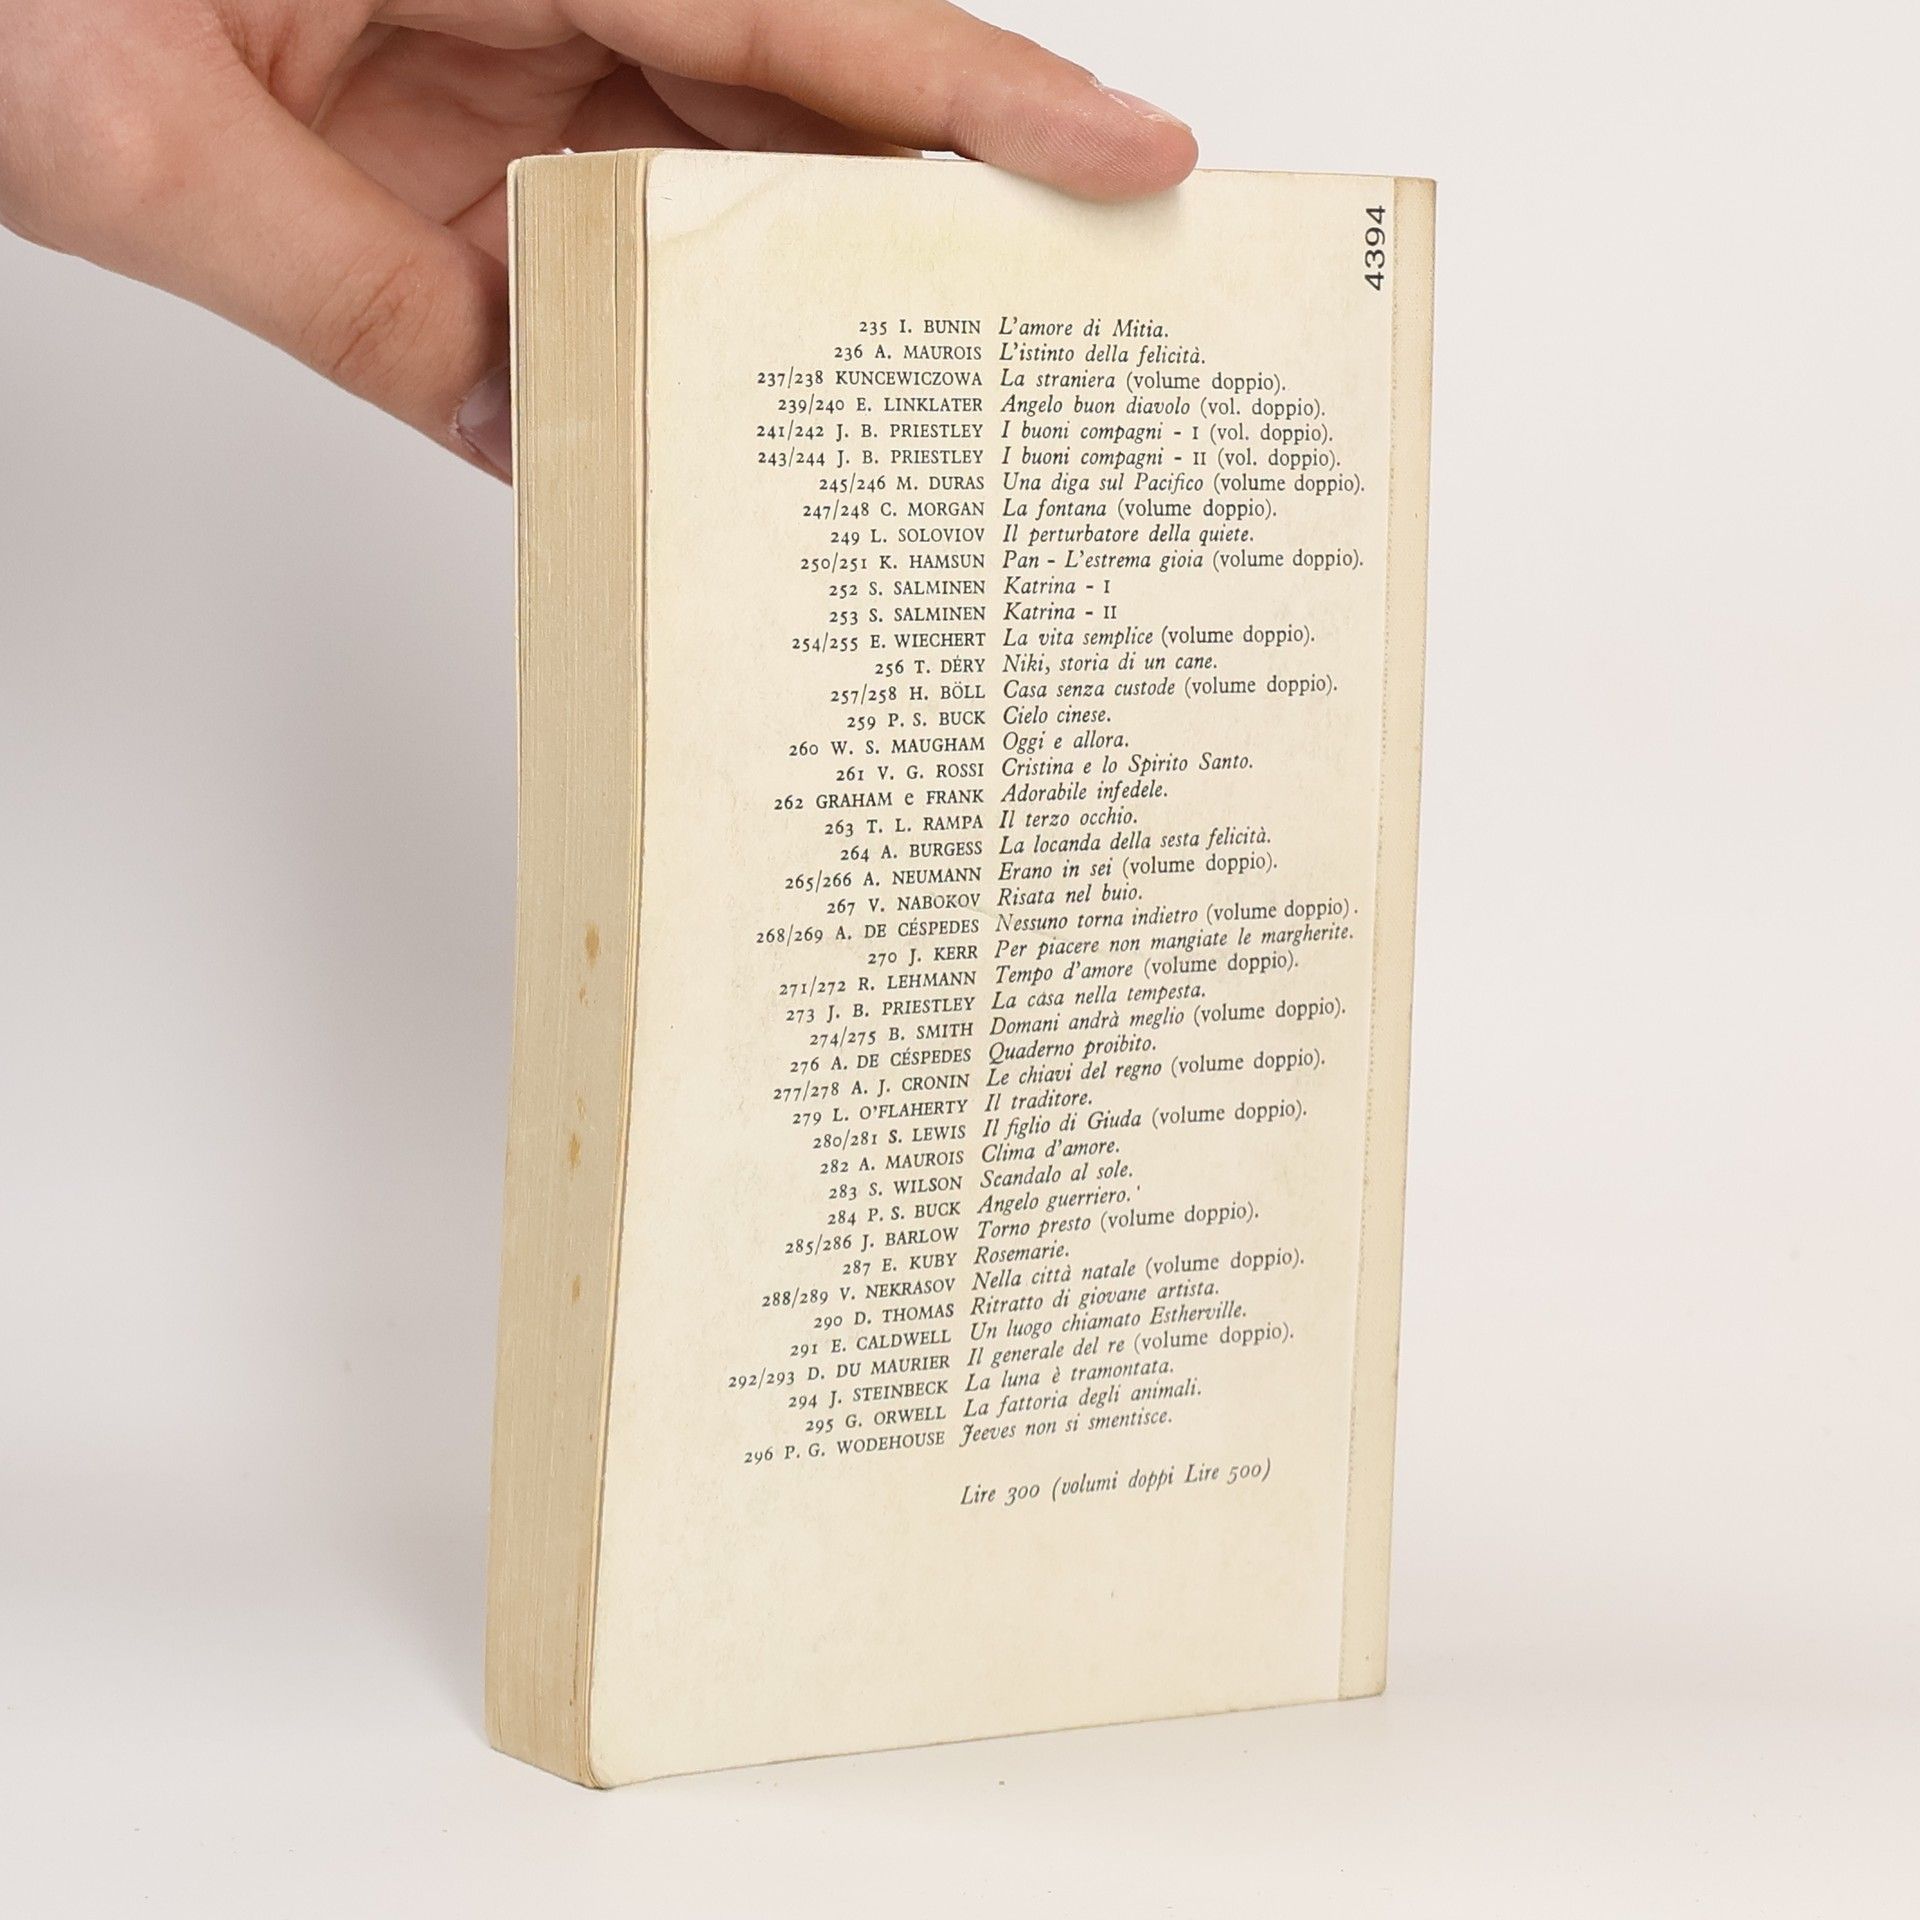 4394
235 I. BUNIN L'amore di Mitia.
236 A. MAUROIS L'istinto della felicità.
237/238 KUNCEWICZOWA La straniera (volume doppio).
239/240 E. LINKLATER Angelo buon diavolo (vol. doppio).
241/242 J. B. PRIESTLEY I buoni compagni - I (vol. doppio).
243/244 J. B. PRIESTLEY I buoni compagni - II (vol. doppio).
245/246 M. DURAS Una diga sul Pacifico (volume doppio).
247/248 C. MORGAN La fontana (volume doppio).
249 L. SOLOVIOV Il perturbatore della quiete.
250/251 K. HAMSUN Pan - L'estrema gioia (volume doppio).
252 S. SALMINEN Katrina - I
253 S. SALMINEN Katrina - II
254/255 E. WIECHERT La vita semplice (volume doppio).
256 T. DÉRY Niki, storia di un cane.
257/258 H. BÖLL Casa senza custode (volume doppio).
259 P. S. BUCK Cielo cinese.
260 W. S. MAUGHAM Oggi e allora.
261 V. G. ROSSI Cristina e lo Spirito Santo.
262 GRAHAM e FRANK Adorabile infedele.
263 T. L. RAMPA Il terzo occhio.
264 A. BURGESS La locanda della sesta felicità.
265/266 A. NEUMANN Erano in sei (volume doppio).
267 V. NABOKOV Risata nel buio.
268/269 A. DE CÉSPEDES Nessuno torna indietro (volume doppio).
270 J. KERR Per piacere non mangiate le margherite.
271/272 R. LEHMANN Tempo d'amore (volume doppio).
273 J. B. PRIESTLEY La casa nella tempesta.
274/275 B. SMITH Domani andrà meglio (volume doppio).
276 A. DE CÉSPEDES Quaderno proibito.
277/278 A. J. CRONIN Le chiavi del regno (volume doppio).
279 L. O'FLAHERTY Il traditore.
280/281 S. LEWIS Il figlio di Giuda (volume doppio).
282 A. MAUROIS Clima d'amore.
283 S. WILSON Scandalo al sole.
284 P. S. BUCK Angelo guerriero.
285/286 J. BARLOW Torno presto (volume doppio).
287 E. KUBY Rosemarie.
288/289 V. NEKRASOV Nella città natale (volume doppio).
290 D. THOMAS Ritratto di giovane artista.
291 E. CALDWELL Un luogo chiamato Estherville.
292/293 D. DU MAURIER Il generale del re (volume doppio).
294 J. STEINBECK La luna è tramontata.
295 G. ORWELL La fattoria degli animali.
296 P. G. WODEHOUSE Jeeves non si smentisce.
Lire 300 (volumi doppi Lire 500)